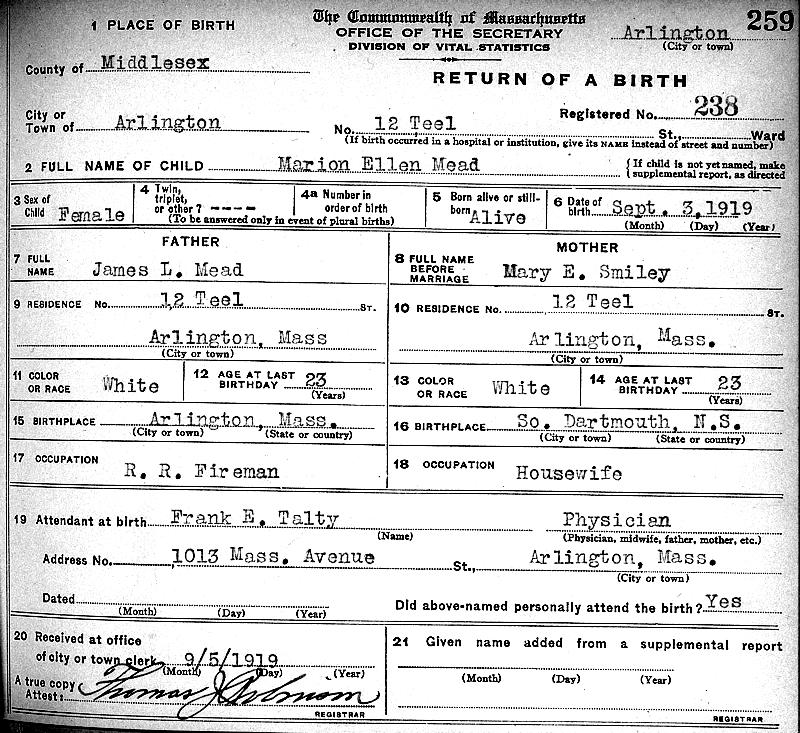 1 PLACE OF BIRTH
The Commonwealth of Massachusetts
OFFICE OF THE SECRETARY
DIVISION OF VITAL STATISTICS
Arlington 259
(City or town)
County of Middlesex
RETURN OF A BIRTH
Registered No. 238
City or Town of Arlington
No. 12 Teel St., Ward
(If birth occurred in a hospital or institution, give its NAME instead of street and number)
2 FULL NAME OF CHILD Marion Ellen Mead
{If child is not yet named, make
supplemental report, as directed
3 Sex of Child Female
4 Twin, triplet, or other? ----
4a Number in order of birth
(To be answered only in event of plural births)
5 Born alive or still-born Alive
6 Date of birth Sept. 3,1919
(Month) (Day) (Year)
FATHER
7 FULL NAME James L. Mead
9 RESIDENCE No. 12 Teel ST.
Arlington, Mass
(City or town)
11 COLOR OR RACE White
12 AGE AT LAST BIRTHDAY 23
(Years)
15 BIRTHPLACE Arlington, Mass.
(City or town) (State or country)
17 OCCUPATION R. R. Fireman
MOTHER
8 FULL NAME BEFORE MARRIAGE Mary E. Smiley
10 RESIDENCE No. 12 Teel ST.
Arlington, Mass.
(City or town)
13 COLOR OR RACE White
14 AGE AT LAST BIRTHDAY 23
(Years)
16 BIRTHPLACE So. Dartmouth, N.S.
(City or town) (State or country)
18 OCCUPATION Housewife
19 Attendant at birth Frank E. Talty Physician
(Name) (Physician, midwife, father, mother, etc.)
Address No. 1013 Mass. Avenue St., Arlington, Mass.
(City or town)
Dated
(Month) (Day) (Year)
Did above-named personally attend the birth? Yes
20 Received at office
of city or town clerk 9/5/1919
(Month) (Day) (Year)
A true copy
Attest: Thomas J.
REGISTRAR
21 Given name added from a supplemental report
(Month) (Day) (Year)
REGISTRAR